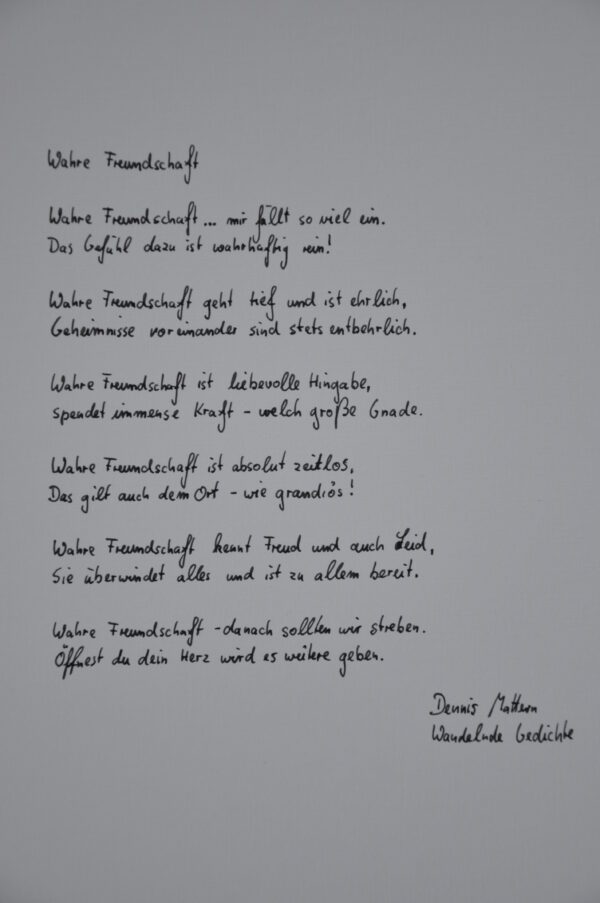 Wahre Freundschaft
Wahre Freundschaft... mir fällt so viel ein.
Das Gefühl dazu ist wahrhaftig rein!
Wahre Freundschaft geht tief und ist ehrlich,
Geheimnisse voreinander sind stets entbehrlich.
Wahre Freundschaft ist liebevolle Hingabe,
spendet immense Kraft - welch große Gnade.
Wahre Freundschaft ist absolut zeitlos,
Das gilt auch dem Ort - wie grandiös!
Wahre Freundschaft kennt Freud und auch Leid,
Sie überwindet alles und ist zu allem bereit.
Wahre Freundschaft - danach sollten wir streben.
Öffnest du dein Herz wird es weitere geben.
Dennis Mattern
Wandelnde Gedichte